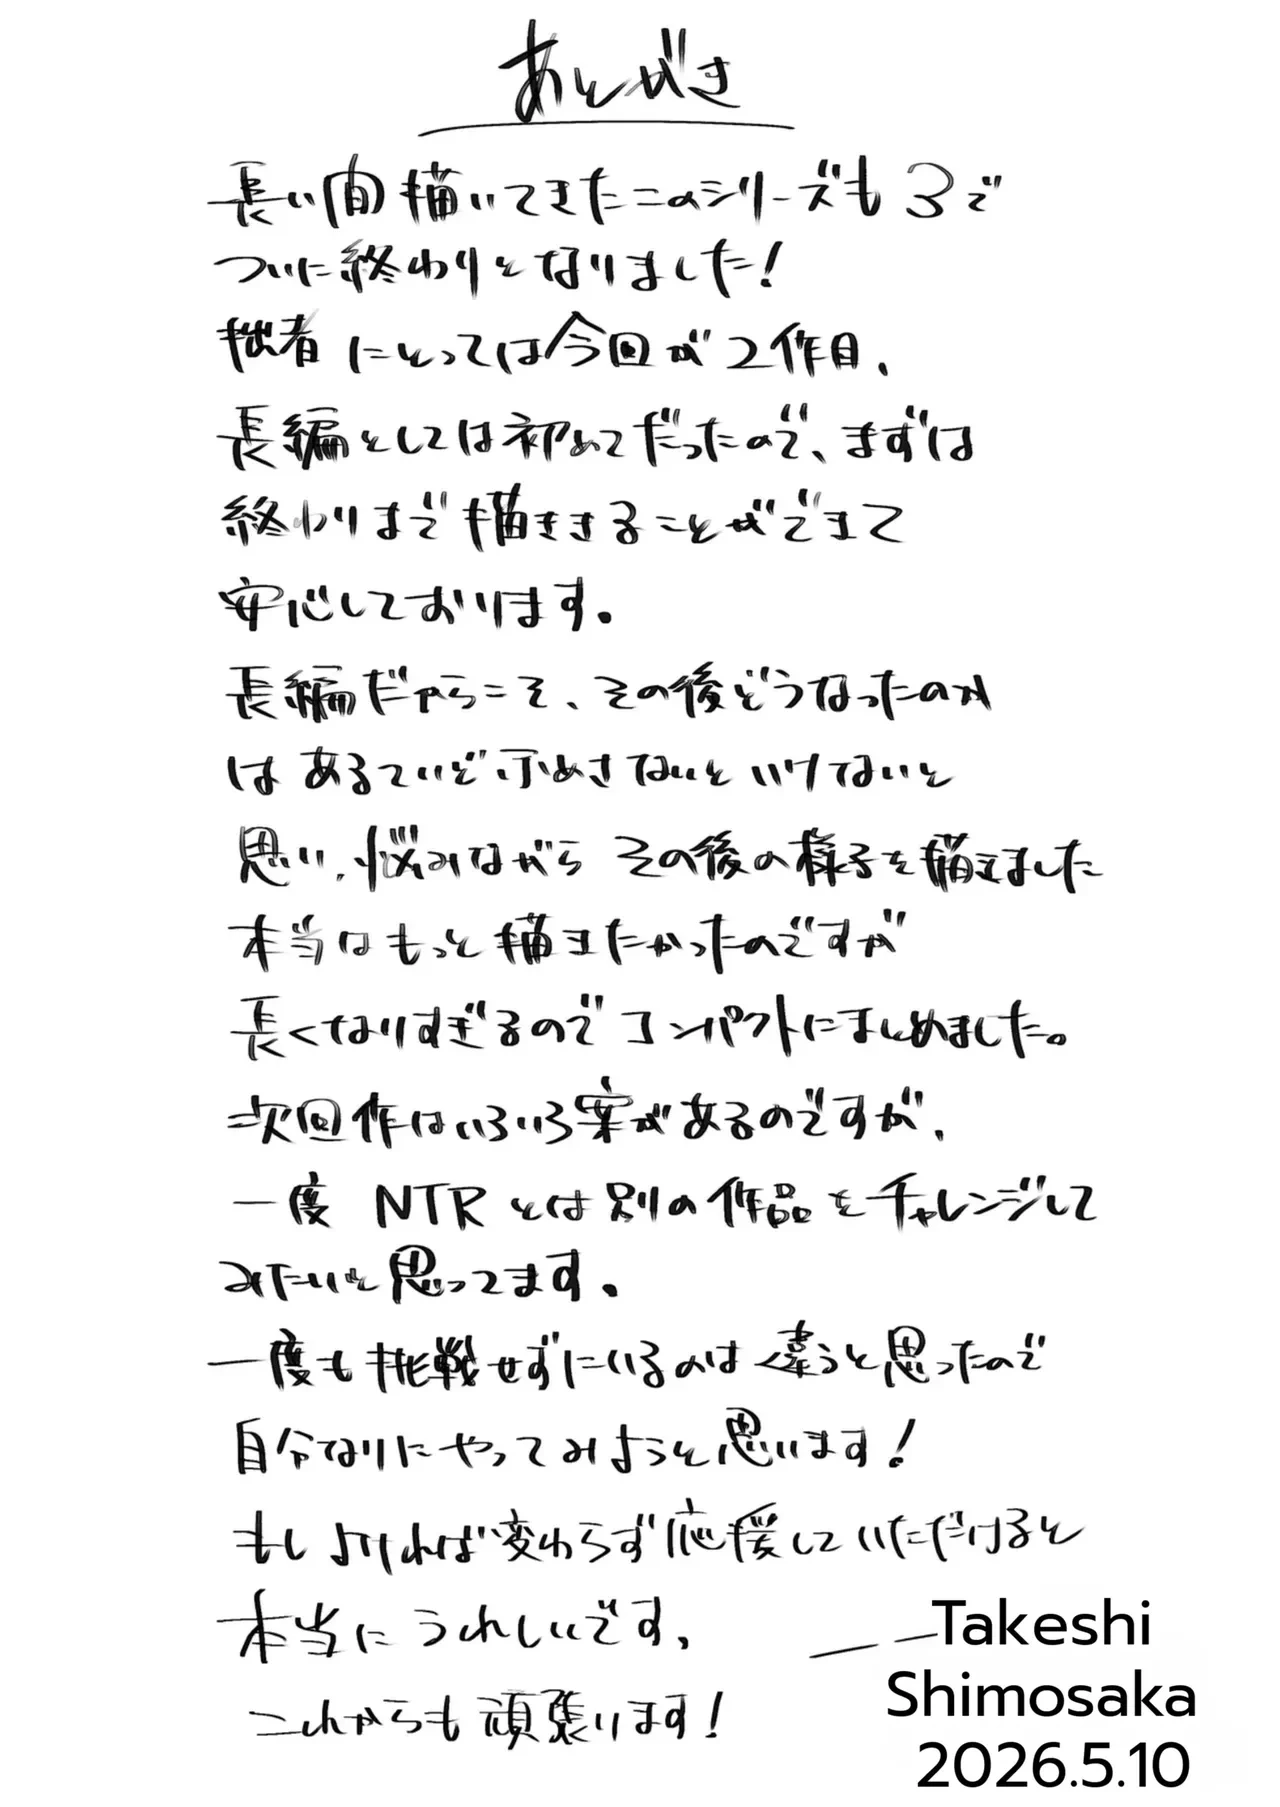 あとがき
長い間描いてきたこのシリーズも3で
ついに終わりとなりました!
拙者にとっては今回が2作目、
長編としては初めてだったので、まずは
終わりまで描ききることができて
安心しております。
長編だからこそ、その後どうなったのか
はあるていど示めさないといけないと
思い、悩みながらその後の様子を描きました
本当はもっと描きたかったのですが
長くなりすぎるのでコンパクトにまとめました。
次回作はいろいろ案があるのですが、
一度 NTRとは別の作品をチャレンジして
みたいと思ってます。
一度も挑戦せずにいるのは違うと思ったので
自分なりにやってみようと思います!
もしよければ変わらず応援していただけると
本当にうれしいです、
これからも頑張ります!
Takeshi
Shimosaka
2026.5.10